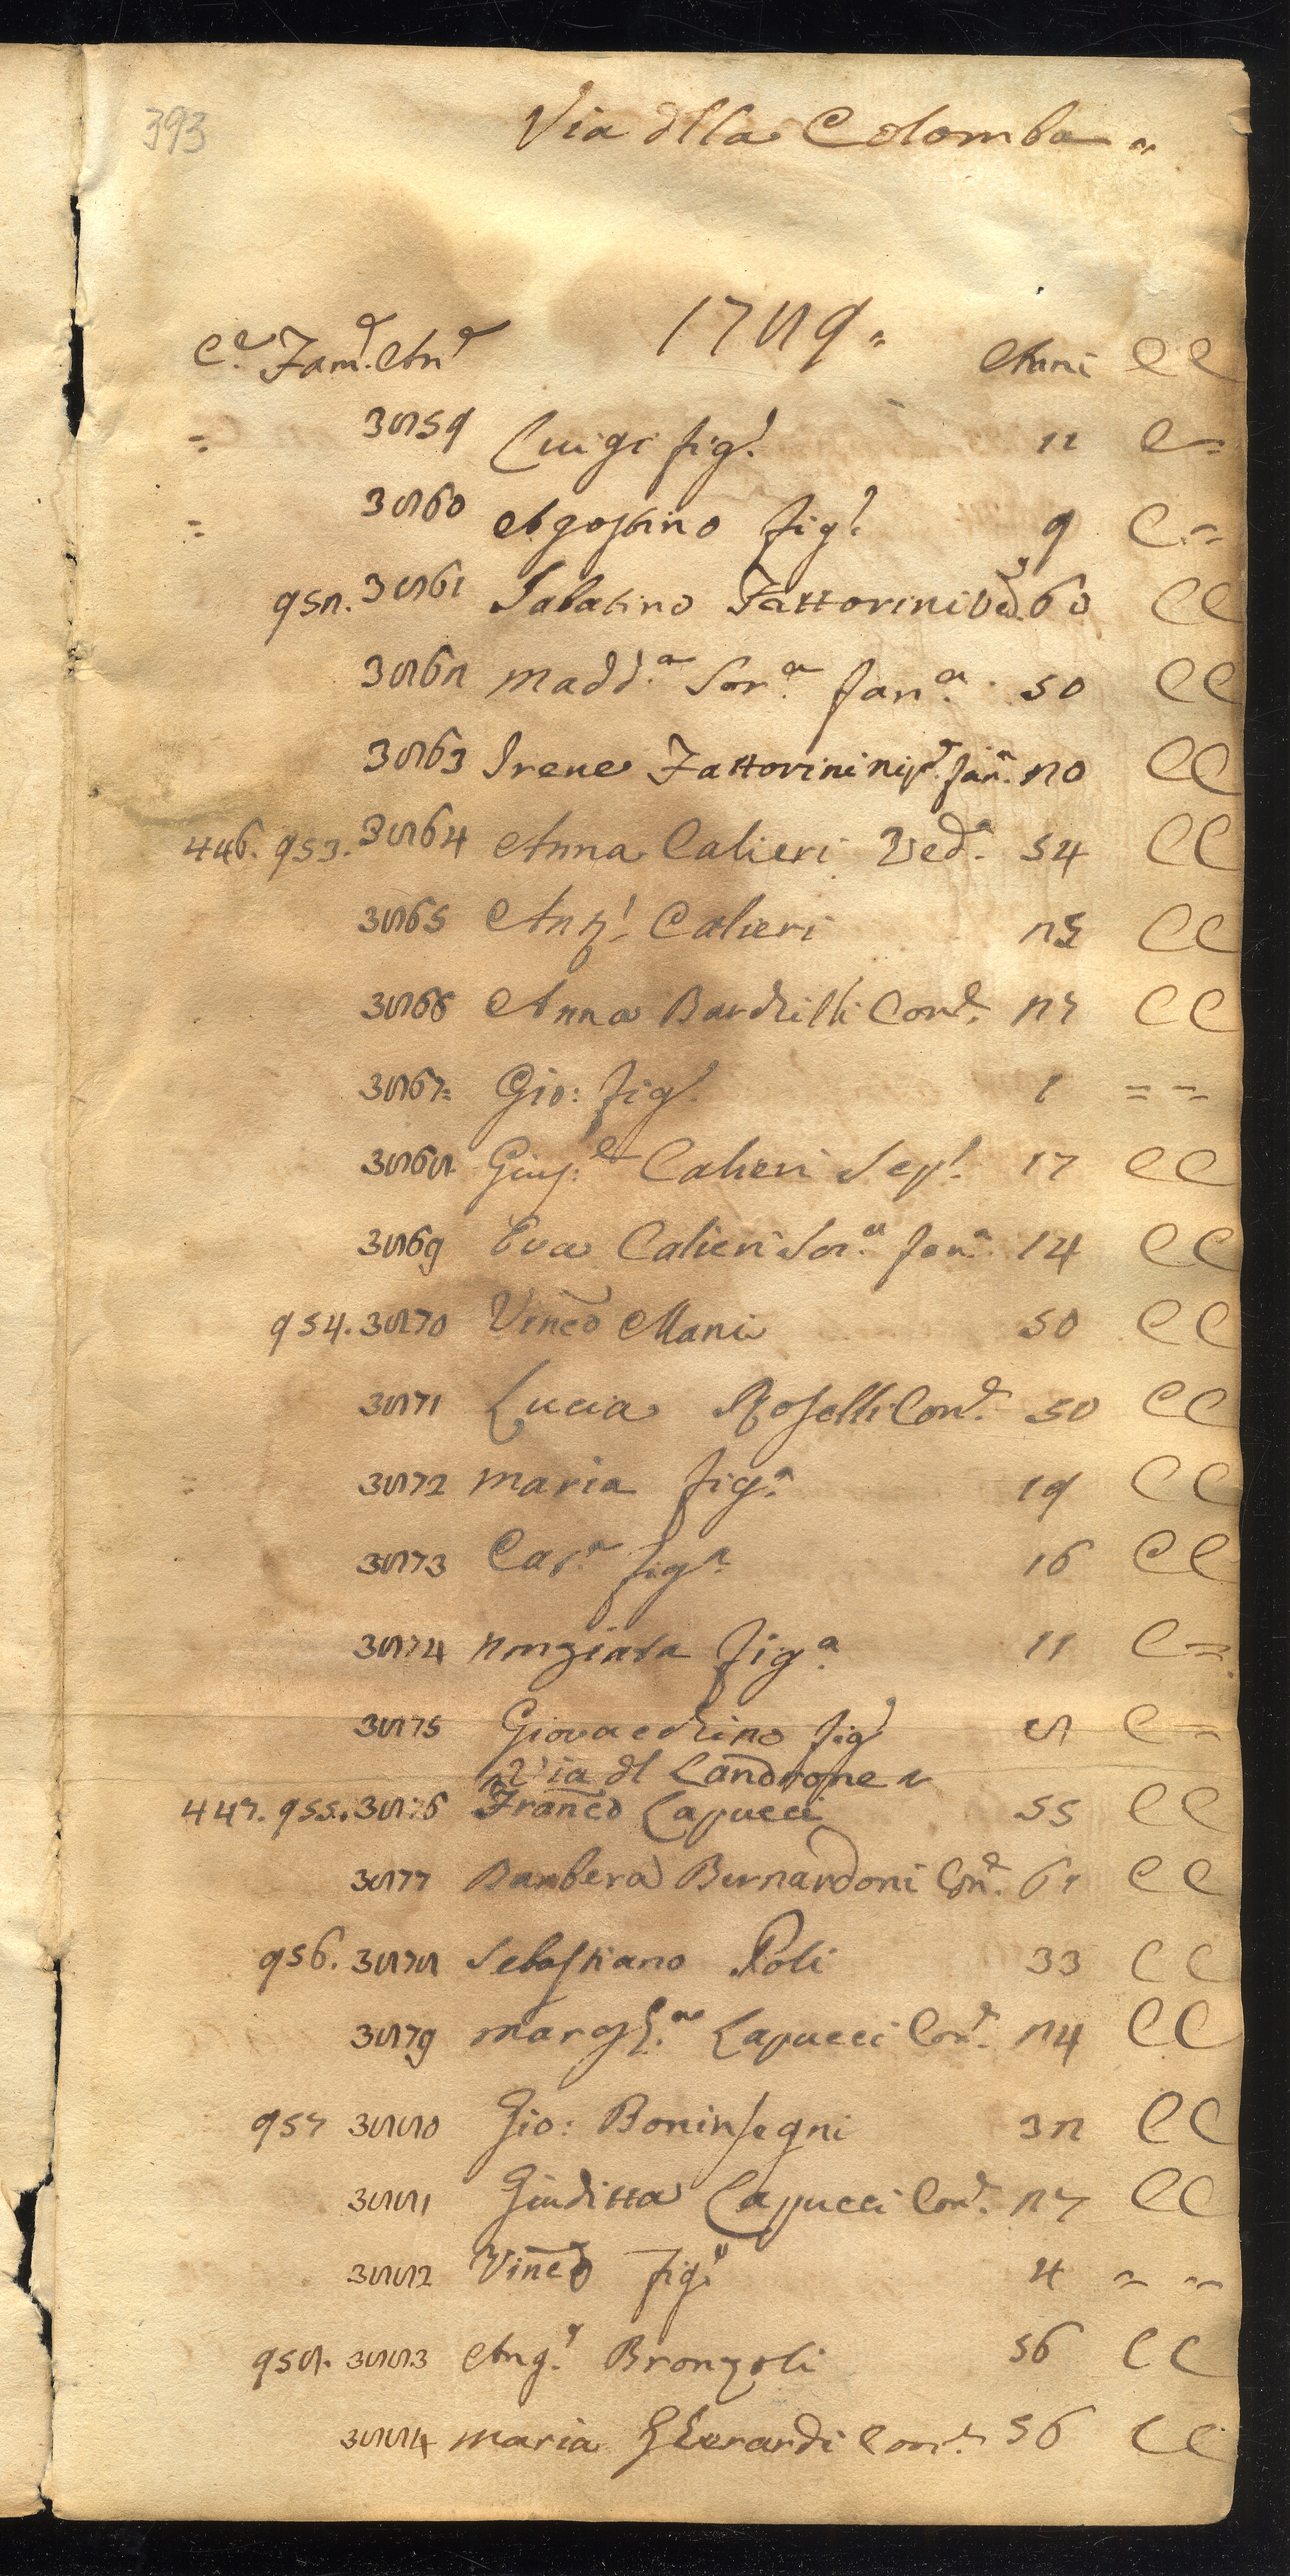 393
Via dlla Colomba =
1789 =
C.e Fam.e An.e Anni CC
= 3859 Luigi fig.l 12 C =
= 3860 Agostino fig.l 9 C =
952. 3861 Sabatino Fattorini Ved.o 60 CC
3862 Madd.a Sor.a fan.a 50 CC
3863 Irene Fattorini nip.e fan.a 20 CC
446. 953. 3864 Anna Calieri Ved.a 54 CC
3865 Ang.l Calieri 25 CC
3866 Anna Bardzilli Con.e 27 CC
3867 = Gio: fig.l 1 = =
3868 Gius.e Calieri Sep.l 17 CC
3869 Eva Calieri Sor.a fan.a 14 CC
954. 3870 Vinco Mani 50 CC
3871 Lucia Roselli Con.e 50 CC
= 3872 Maria fig.a 19 CC
3873 Cat.a fig.a 16 CC
3874 Nonziata fig.a 11 C =
3875 Giovacchino fig.l 8 C =
Via dl Landrone =
447. 955. 3876 Franco Capucci 55 CC
3877 Barbera Bernardoni Con.e CC
956. 3878 Sebastiano Poli 33 CC
3879 Margh.a Capucci Con.e 24 CC
957 3880 Gio: Boninsegni 32 CC
3881 Giuditta Capucci Con.e 27 CC
3882 Vinco fig.l 4 = =
958. 3883 Ang.l Bronzoli 56 CC
3884 Maria Gherardi Con.e 56 CC